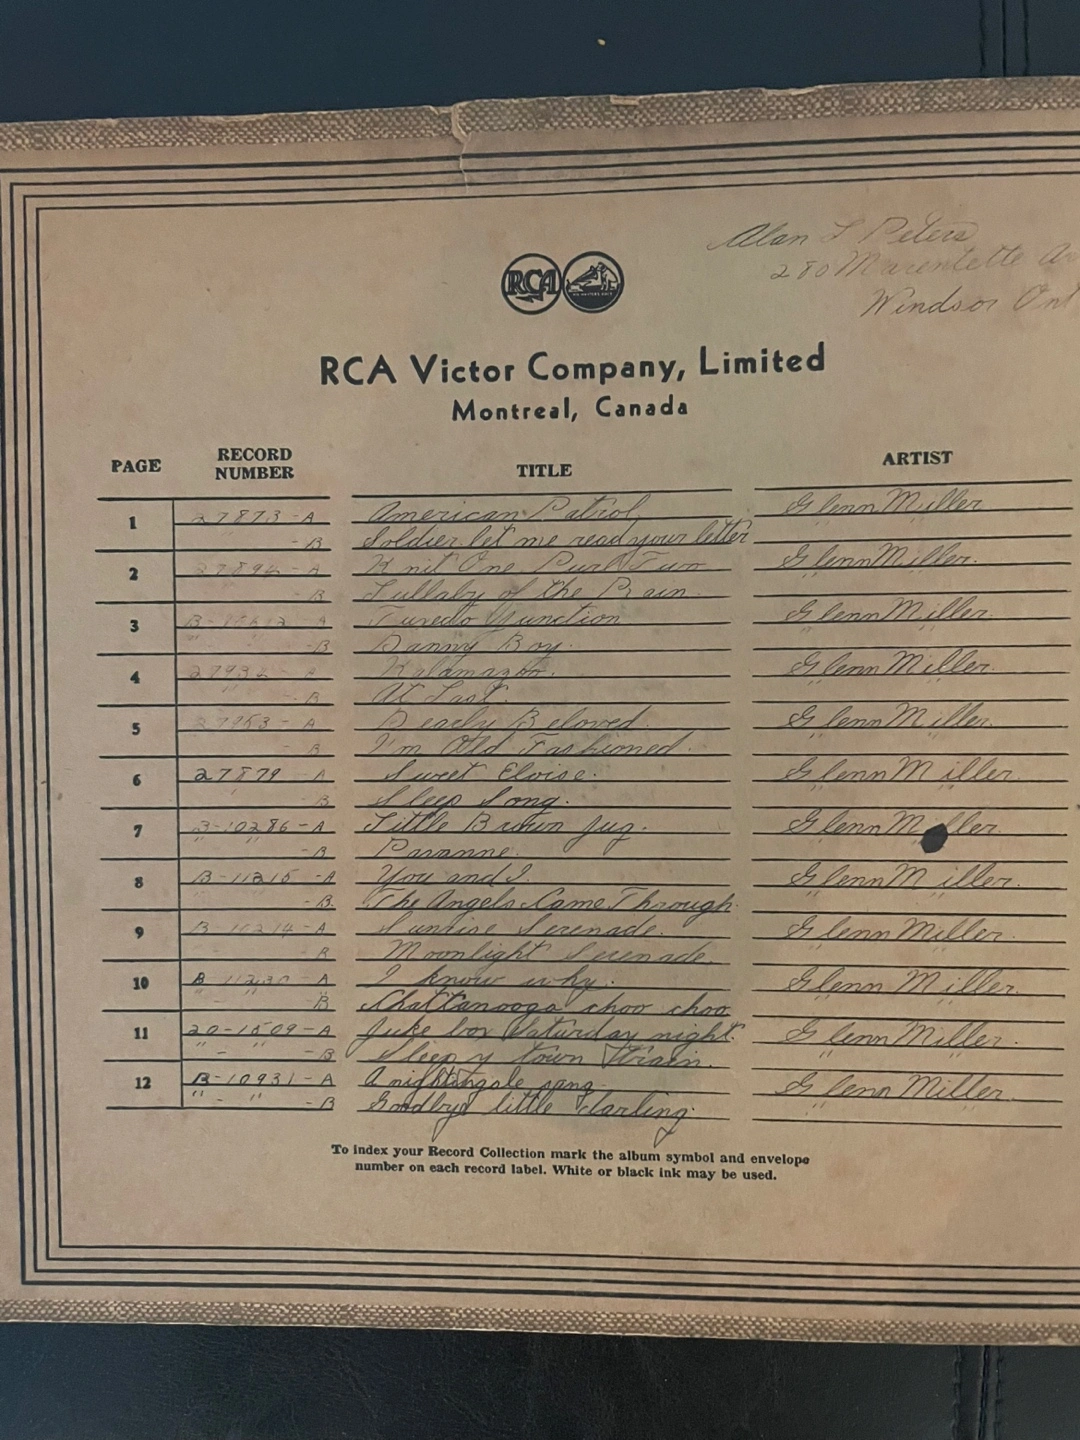 Alan L Peters
280 Marentette Av
Windsor Ont
RCA
HIS MASTER'S VOICE
RCA Victor Company, Limited
Montreal, Canada
PAGE RECORD NUMBER TITLE ARTIST
1 27873-A American Patrol Glenn Miller
-B Soldier let me read your letter " "
2 27894-A Knit One Purl Two Glenn Miller.
-B Lullaby of the Rain.
3 -A Tuxedo Junction Glenn Miller.
" -B Danny Boy. " "
4 27934 - A Kalamazoo. Glenn Miller.
" - B At Last. " "
5 27953 - A Dearly Beloved. Glenn Miller.
- B I'm Old Fashioned. " "
6 27879 - A Sweet Eloise. Glenn Miller.
" - B Sleep Song. " "
7 B-10286-A Little Brown Jug. Glenn Miller.
" " -B Pavanne. " "
8 B-11215 -A You and I. Glenn Miller.
-B. The Angels Came Through. " "
9 B-10214-A Sunrise Serenade. Glenn Miller.
- B Moonlight Serenade. " "
10 B-11230-A I know why. Glenn Miller.
" - " B Chattanooga choo choo. " "
11 20-1509-A Juke box Saturday night. Glenn Miller.
" - " -B Sleepy town Train. " "
12 B-10931-A A nightingale sang- Glenn Miller.
" - " -B Goodbye little darling. " "
To index your Record Collection mark the album symbol and envelope
number on each record label. White or black ink may be used.